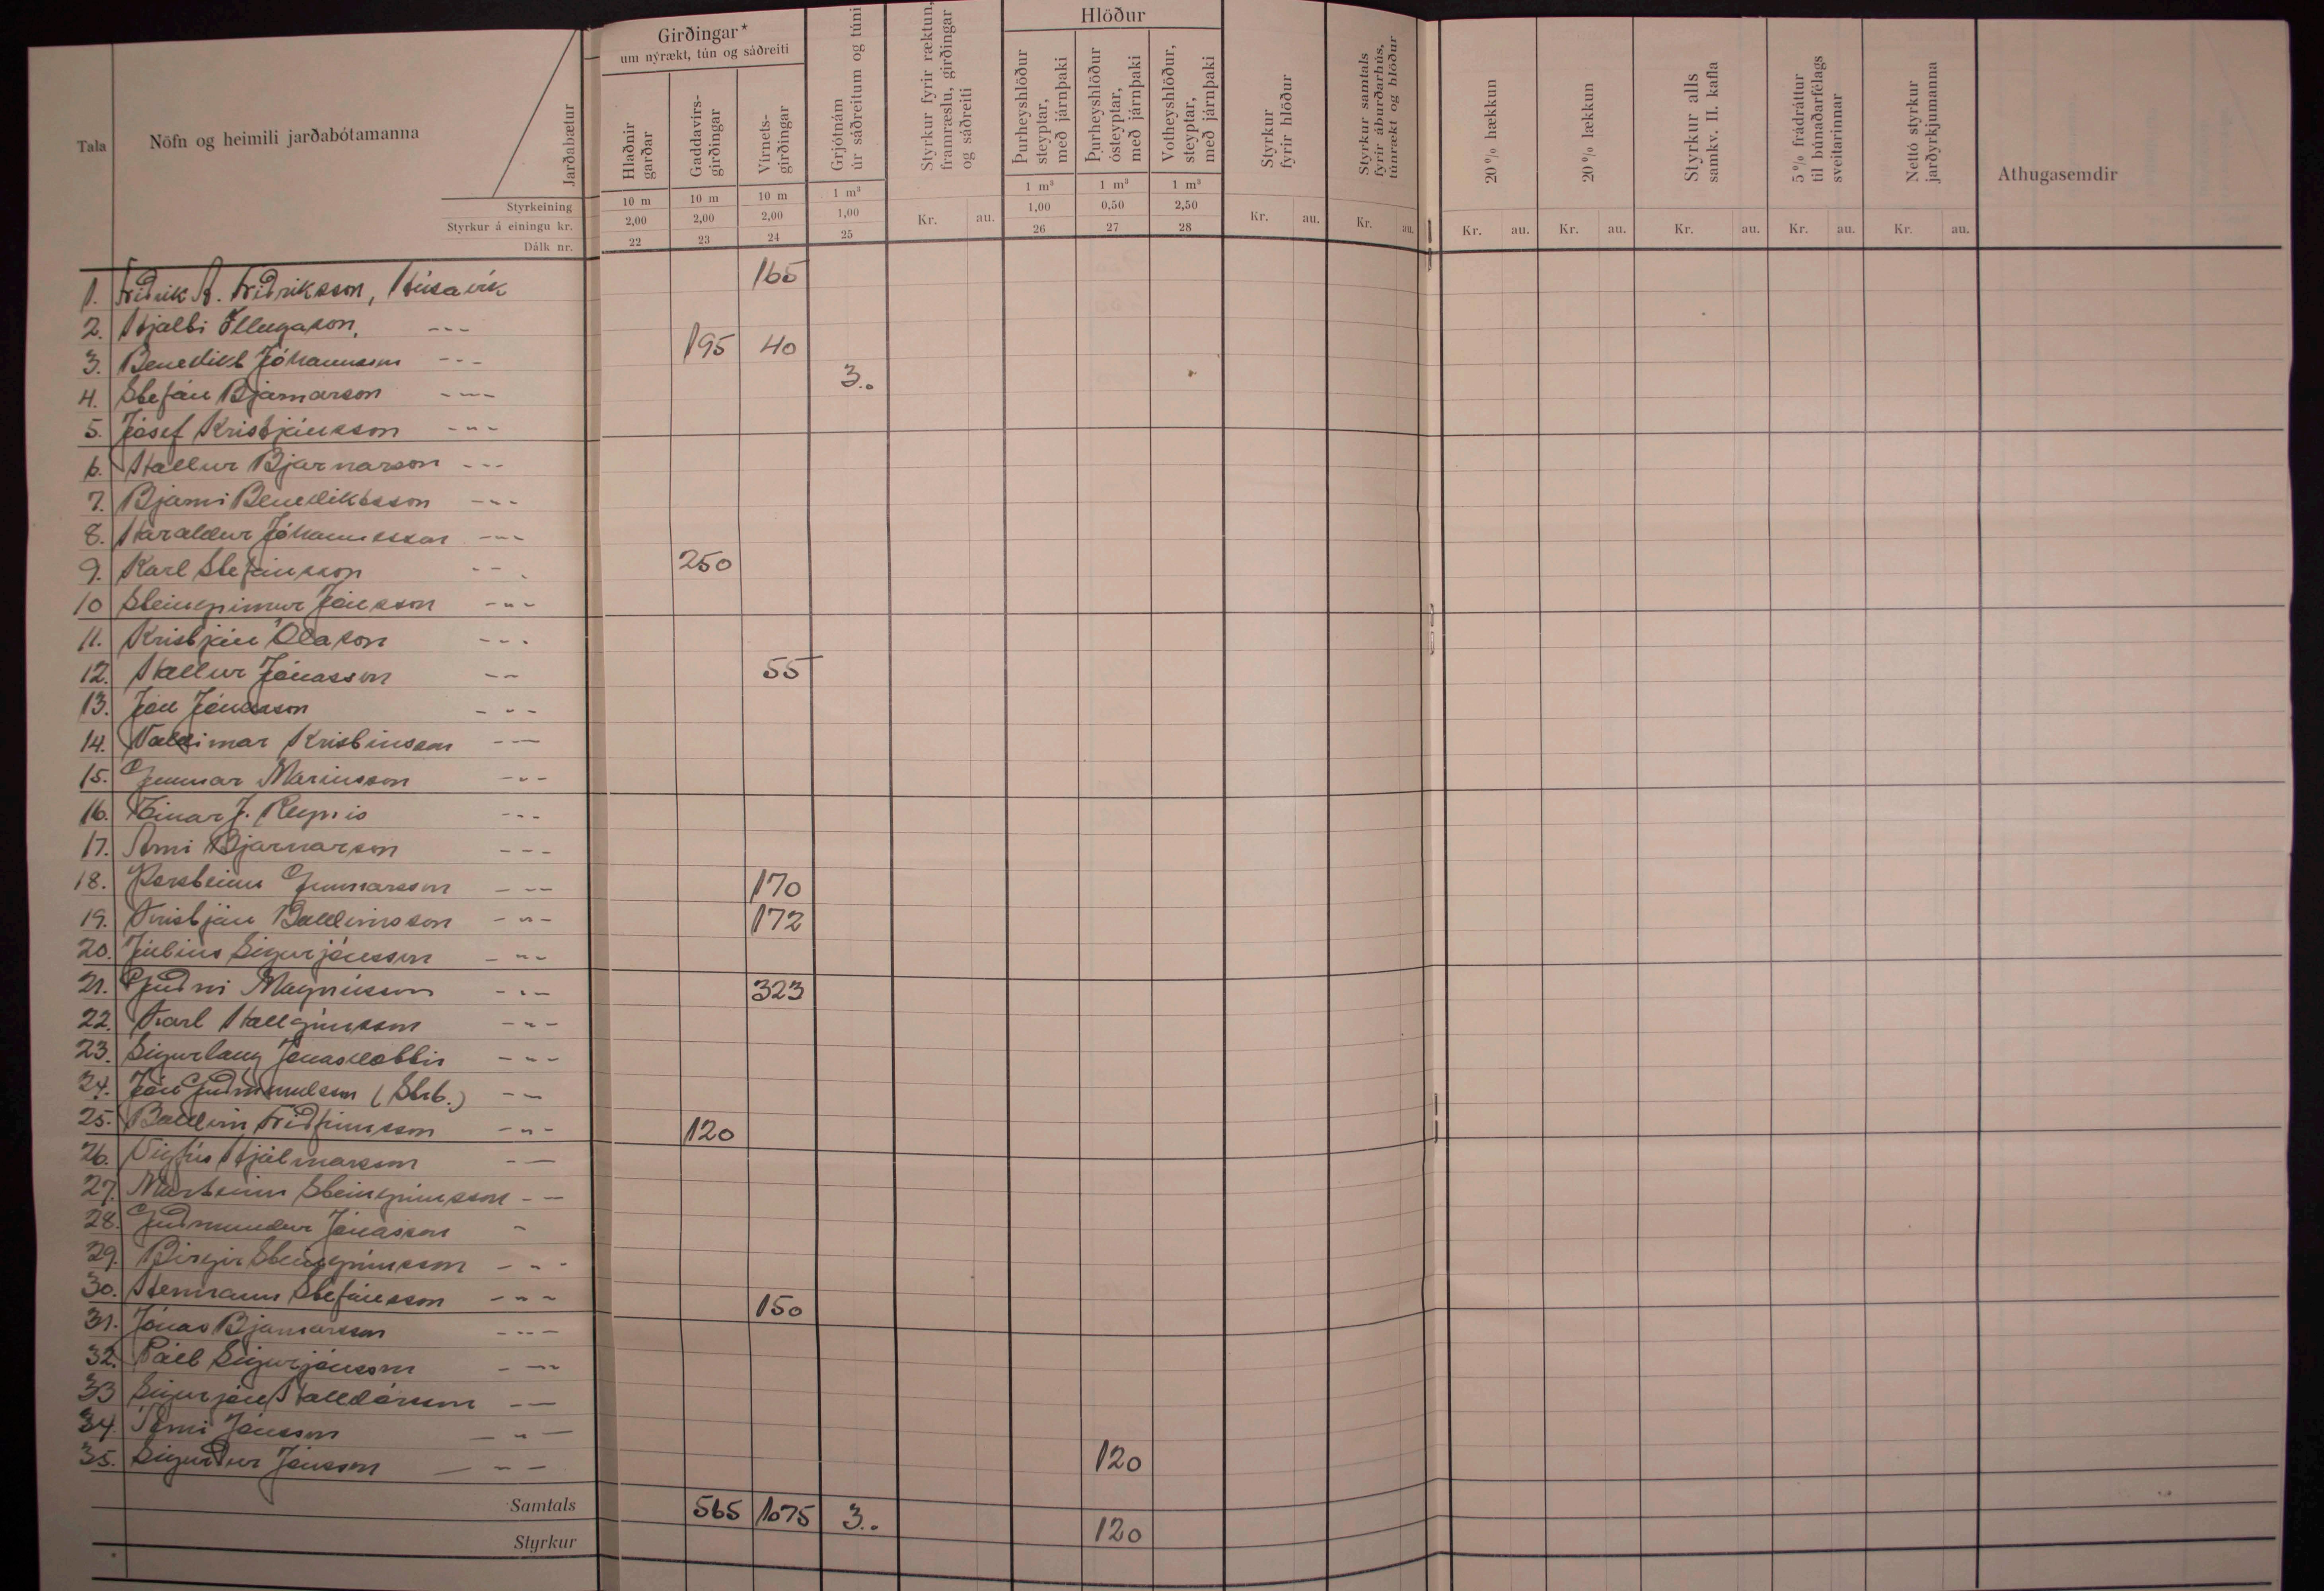 Tala
Nöfn og heimili jarðabótamanna
Jarðabætur
Styrkeining
Styrkur á einingu kr.
Dálk nr.
Girðingar*
um nýrækt, tún og sáðreiti
Hlaðnir garðar
10 m
2,00
22
Gaddavírs-girðingar
10 m
2,00
23
Vírnets-girðingar
10 m
2,00
24
Grjótnám úr sáðreitum og túni
1 m³
1,00
25
Styrkur fyrir ræktun, framræslu, girðingar og sáðreiti
Kr. au.
Hlöður
Þurheyshlöður steyptar, með járnþaki
1 m³
1,00
26
Þurheyshlöður ósteyptar, með járnþaki
1 m³
0,50
27
Votheyshlöður, steyptar, með járnþaki
1 m³
2,50
28
Styrkur fyrir hlöður
Kr. au.
Styrkur samtals fyrir áburðarhús, túnrækt og hlöður
Kr. au.
20% hækkun
Kr. au.
20% lækkun
Kr. au.
Styrkur alls samkv. II. kafla
Kr. au.
5% frádráttur til búnaðarfélags sveitarinnar
Kr. au.
Nettó styrkur jarðyrkjumanna
Kr. au.
Athugasemdir
1. Friðrik A. Friðriksson, Húsavík 165
2. Hjalti Illugason, ---
3. Benedikt Jóhannsson --- 195 40
4. Stefán Bjarnarson --- 3..
5. Jósef Kristjánsson -"-
6. Hallur Bjarnarson ---
7. Bjarni Benediktsson -"-
8. Haraldur Jóhannesson -"-
9. Karl Stefánsson --- 250
10 Steingrímur Jónsson -"-
11. Kristján Ólason ---
12. Hallur Jónasson -- 55
13. Jón Jónasson -"-
14. Valdimar Kristinsson --
15. Gunnar Maríusson -"-
16. Einar J. Reynis ---
17. Árni Bjarnarson ---
18. Þorsteinn Gunnarsson --- 170
19. Kristján Baldvinsson -"- 172
20. Júlíus Sigurjónsson -"-
21. Guðni Magnússon -"- 323
22. Karl Hallgrímsson -"-
23. Sigurlaug Jónasdóttir -"-
24. Jón Guðmundsson (Strb.) --
25. Baldvin Friðfinnsson -"- 120
26. Vigfús Hjálmarsson --
27. Marteinn Steingrímsson --
28. Guðmundur Jónasson -
29. Birgir Steingrímsson -"-
30. Hermann Stefánsson -"- 150
31. Jónas Bjarnarson -"-
32. Páll Sigurjónsson -"-
33 Sigurjón Halldórsson --
34. Árni Jónsson -"-
35. Sigurður Jónsson -"- 120
Samtals 565 1075 3.. 120
Styrkur